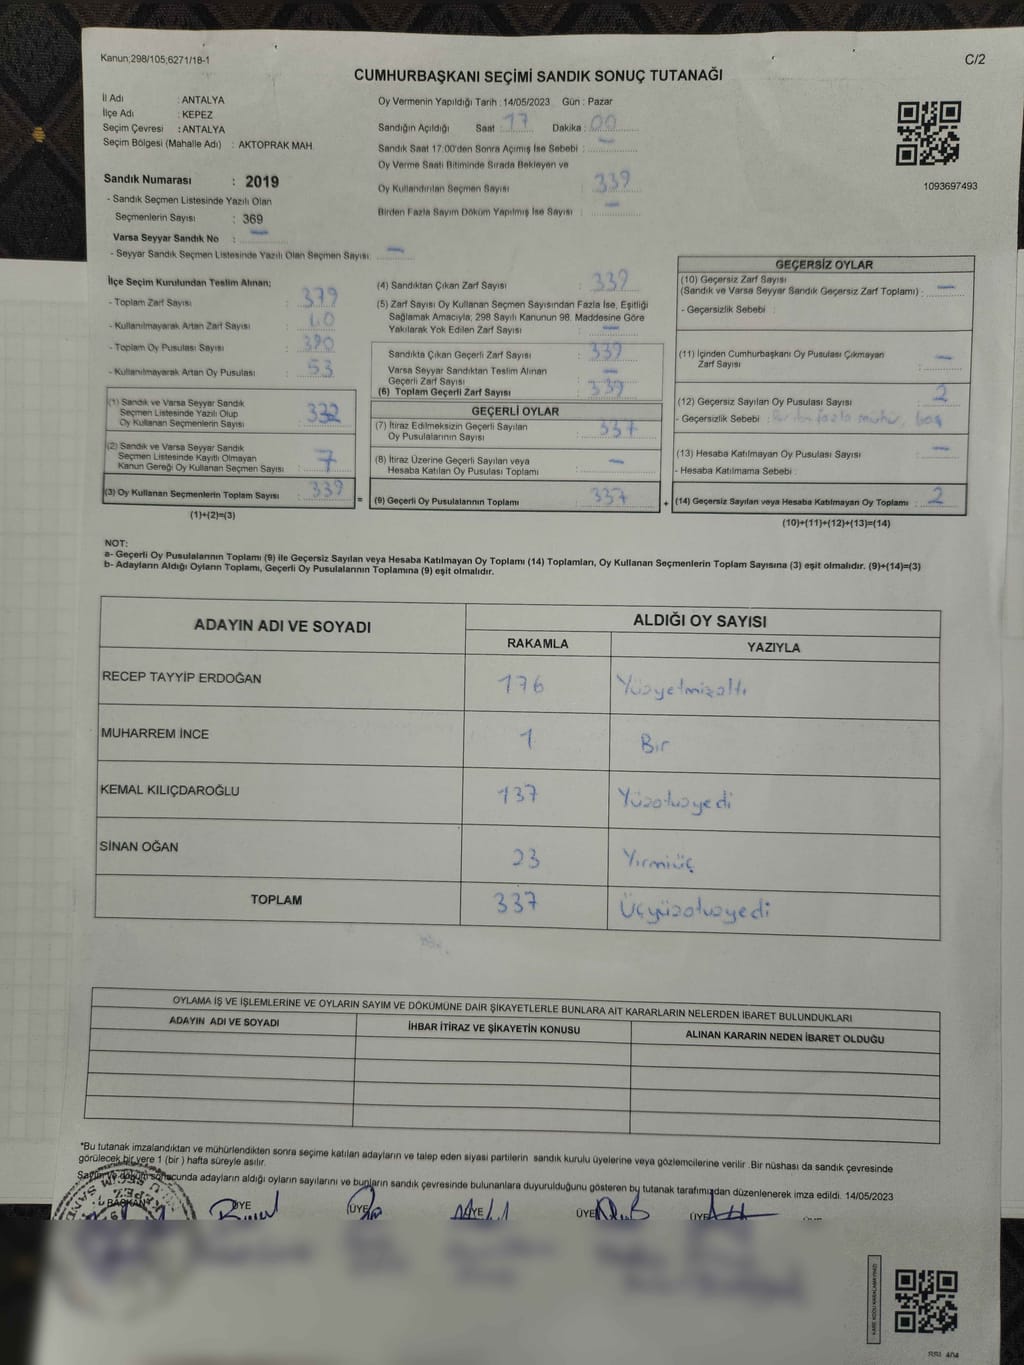 Kanun;298/105;6271/18-1
C/2
CUMHURBAŞKANI SEÇİMİ SANDIK SONUÇ TUTANAĞI
İl Adı : ANTALYA
İlçe Adı : KEPEZ
Seçim Çevresi : ANTALYA
Seçim Bölgesi (Mahalle Adı) : AKTOPRAK MAH.
Sandık Numarası : 2019
- Sandık Seçmen Listesinde Yazılı Olan
Seçmenlerin Sayısı : 369
Varsa Seyyar Sandık No : —
- Seyyar Sandık Seçmen Listesinde Yazılı Olan Seçmen Sayısı: —
Oy Vermenin Yapıldığı Tarih : 14/05/2023 Gün : Pazar
Sandığın Açıldığı Saat : 17 Dakika : 00
Sandık Saat 17:00'den Sonra Açımış İse Sebebi : —
Oy Verme Saati Bitiminde Sırada Bekleyen ve
Oy Kullandırılan Seçmen Sayısı : 339
Birden Fazla Sayım Döküm Yapılmış İse Sayısı : —
1093697493
İlçe Seçim Kurulundan Teslim Alınan;
- Toplam Zarf Sayısı : 379
- Kullanılmayarak Artan Zarf Sayısı :
- Toplam Oy Pusulası Sayısı : 390
- Kullanılmayarak Artan Oy Pusulası : 53
(1) Sandık ve Varsa Seyyar Sandık
Seçmen Listesinde Yazılı Olup
Oy Kullanan Seçmenlerin Sayısı : 332
(2) Sandık ve Varsa Seyyar Sandık
Seçmen Listesinde Kayıtlı Olmayan
Kanun Gereği Oy Kullanan Seçmen Sayısı : 7
(3) Oy Kullanan Seçmenlerin Toplam Sayısı : 339
(1)+(2)=(3)
=
(4) Sandıktan Çıkan Zarf Sayısı : 339
(5) Zarf Sayısı Oy Kullanan Seçmen Sayısından Fazla İse, Eşitliği
Sağlamak Amacıyla; 298 Sayılı Kanunun 98. Maddesine Göre
Yakılarak Yok Edilen Zarf Sayısı : —
Sandıkta Çıkan Geçerli Zarf Sayısı : 339
Varsa Seyyar Sandıktan Teslim Alınan
Geçerli Zarf Sayısı : —
(6) Toplam Geçerli Zarf Sayısı : 339
GEÇERLİ OYLAR
(7) İtiraz Edilmeksizin Geçerli Sayılan
Oy Pusulalarının Sayısı : 337
(8) İtiraz Üzerine Geçerli Sayılan veya
Hesaba Katılan Oy Pusulası Toplamı : —
(9) Geçerli Oy Pusulalarının Toplamı : 337
+
GEÇERSİZ OYLAR
(10) Geçersiz Zarf Sayısı
(Sandık ve Varsa Seyyar Sandık Geçersiz Zarf Toplamı) : —
- Geçersizlik Sebebi :
(11) İçinden Cumhurbaşkanı Oy Pusulası Çıkmayan
Zarf Sayısı : —
(12) Geçersiz Sayılan Oy Pusulası Sayısı : 2
- Geçersizlik Sebebi : fazla mühür,
(13) Hesaba Katılmayan Oy Pusulası Sayısı : —
- Hesaba Katılmama Sebebi :
(14) Geçersiz Sayılan veya Hesaba Katılmayan Oy Toplamı : 2
(10)+(11)+(12)+(13)=(14)
NOT:
a- Geçerli Oy Pusulalarının Toplamı (9) ile Geçersiz Sayılan veya Hesaba Katılmayan Oy Toplamı (14) Toplamları, Oy Kullanan Seçmenlerin Toplam Sayısına (3) eşit olmalıdır. (9)+(14)=(3)
b- Adayların Aldığı Oyların Toplamı, Geçerli Oy Pusulalarının Toplamına (9) eşit olmalıdır.
ADAYIN ADI VE SOYADI
ALDIĞI OY SAYISI
RAKAMLA YAZIYLA
RECEP TAYYİP ERDOĞAN 176 Yüzyetmişaltı
MUHARREM İNCE 1 Bir
KEMAL KILIÇDAROĞLU 137 Yüzotuzyedi
SİNAN OĞAN 23 Yirmiüç
TOPLAM 337 Üçyüzotuzyedi
OYLAMA İŞ VE İŞLEMLERİNE VE OYLARIN SAYIM VE DÖKÜMÜNE DAİR ŞİKAYETLERLE BUNLARA AİT KARARLARIN NELERDEN İBARET BULUNDUKLARI
ADAYIN ADI VE SOYADI İHBAR İTİRAZ VE ŞİKAYETİN KONUSU ALINAN KARARIN NEDEN İBARET OLDUĞU
*Bu tutanak imzalandıktan ve mühürlendikten sonra seçime katılan adayların ve talep eden siyasi partilerin sandık kurulu üyelerine veya gözlemcilerine verilir .Bir nüshası da sandık çevresinde
görülecek bir yere 1 (bir ) hafta süreyle asılır.
Sayım ve döküm sonucunda adayların aldığı oyların sayılarını ve bunların sandık çevresinde bulunanlara duyurulduğunu gösteren bu tutanak tarafımızdan düzenlenerek imza edildi. 14/05/2023
BAŞKAN ÜYE ÜYE ÜYE ÜYE ÜYE